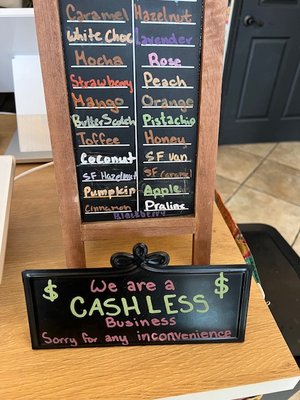 Caramel Hazelnut
White Choc Lavender
Mocha Rose
Strawberry Peach
Mango Orange
ButterScotch Pistachio
Toffee Honey
Coconut SF Van
SF Hazelnut SF Caramel
Pumpkin Apple
Cinnamon Praline
Blackberry
$ We are a $
CASHLESS
Business
Sorry for any inconvenience